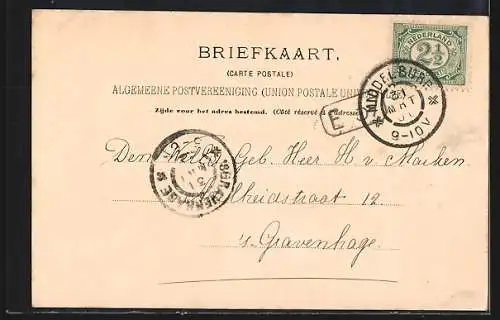 BRIEFKAART.
(CARTE POSTALE)
ALGEMEENE POSTVEREENIGING (UNION POSTALE UNI
Zijde voor het adres bestemd. (Côté réservé à l'adresse
NEDERLAND
2½
MIDDELBURG
31
MRT
01
9-10V
E
Geb. Heer H. v. Marken
12
's Gravenhage.
'SGRAVENHAGE